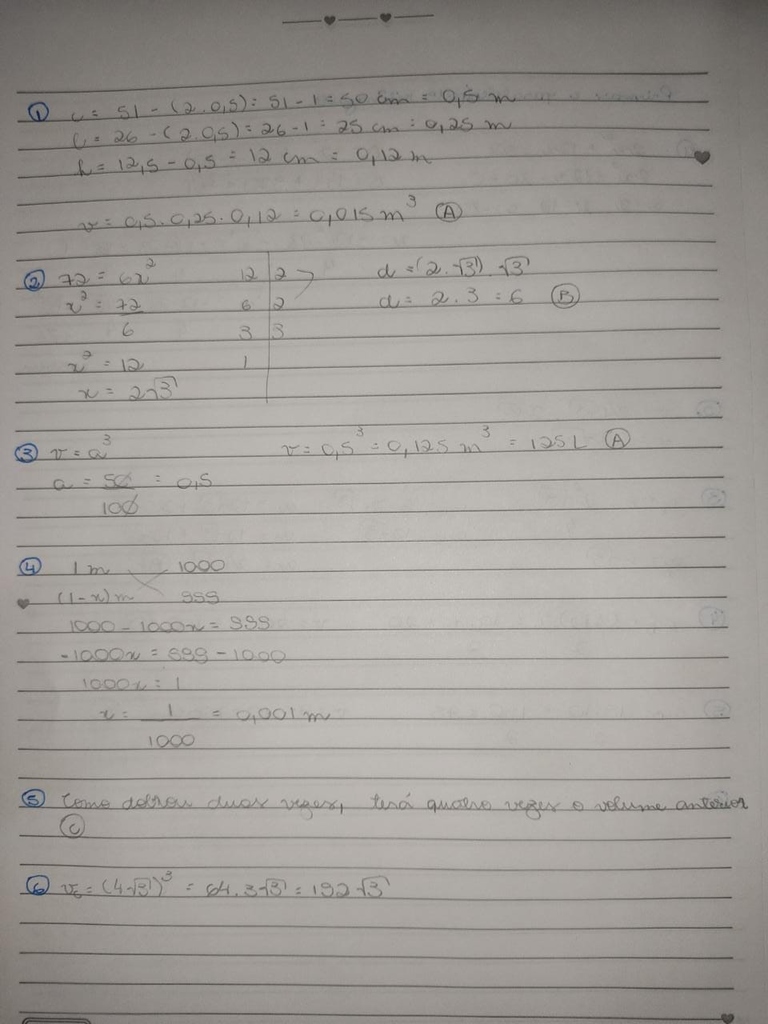 ① c = 51 - (2.0,5) = 51 - 1 = 50 cm = 0,5 m
l = 26 - (2.0,5) = 26 - 1 = 25 cm = 0,25 m
h = 12,5 - 0,5 = 12 cm = 0,12 m
v = 0,5.0,25.0,12 = 0,015 m³ Ⓐ
② 72 = 6x² 12 | 2 d = (2.√3).√3
x² = 72 6 | 2 d = 2.3 = 6 Ⓑ
6 3 | 3
x² = 12 1
x = 2√3
③ v = a³ v = 0,5³ = 0,125 m³ = 125 L Ⓐ
a = 50 = 0,5
100
④ 1 m 1000
(1-x) m 999
1000 - 1000x = 999
-1000x = 999 - 1000
1000x = 1
x = 1 = 0,001 m
1000
⑤ Como dobrou duas vezes, terá quatro vezes o volume anterior
Ⓒ
⑥ v = (4√3)³ = 64.3√3 = 192√3